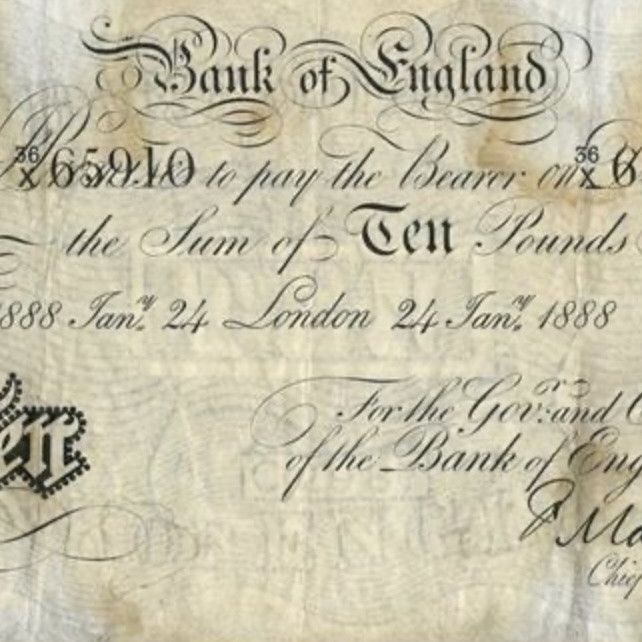 Bank of England
36 X 65910 to pay the Bearer on 36 X 6
the Sum of Ten Pounds
1888 Jany. 24 London 24 Jany. 1888
For the Govr. and C
Ten
of the Bank of Eng
Chief